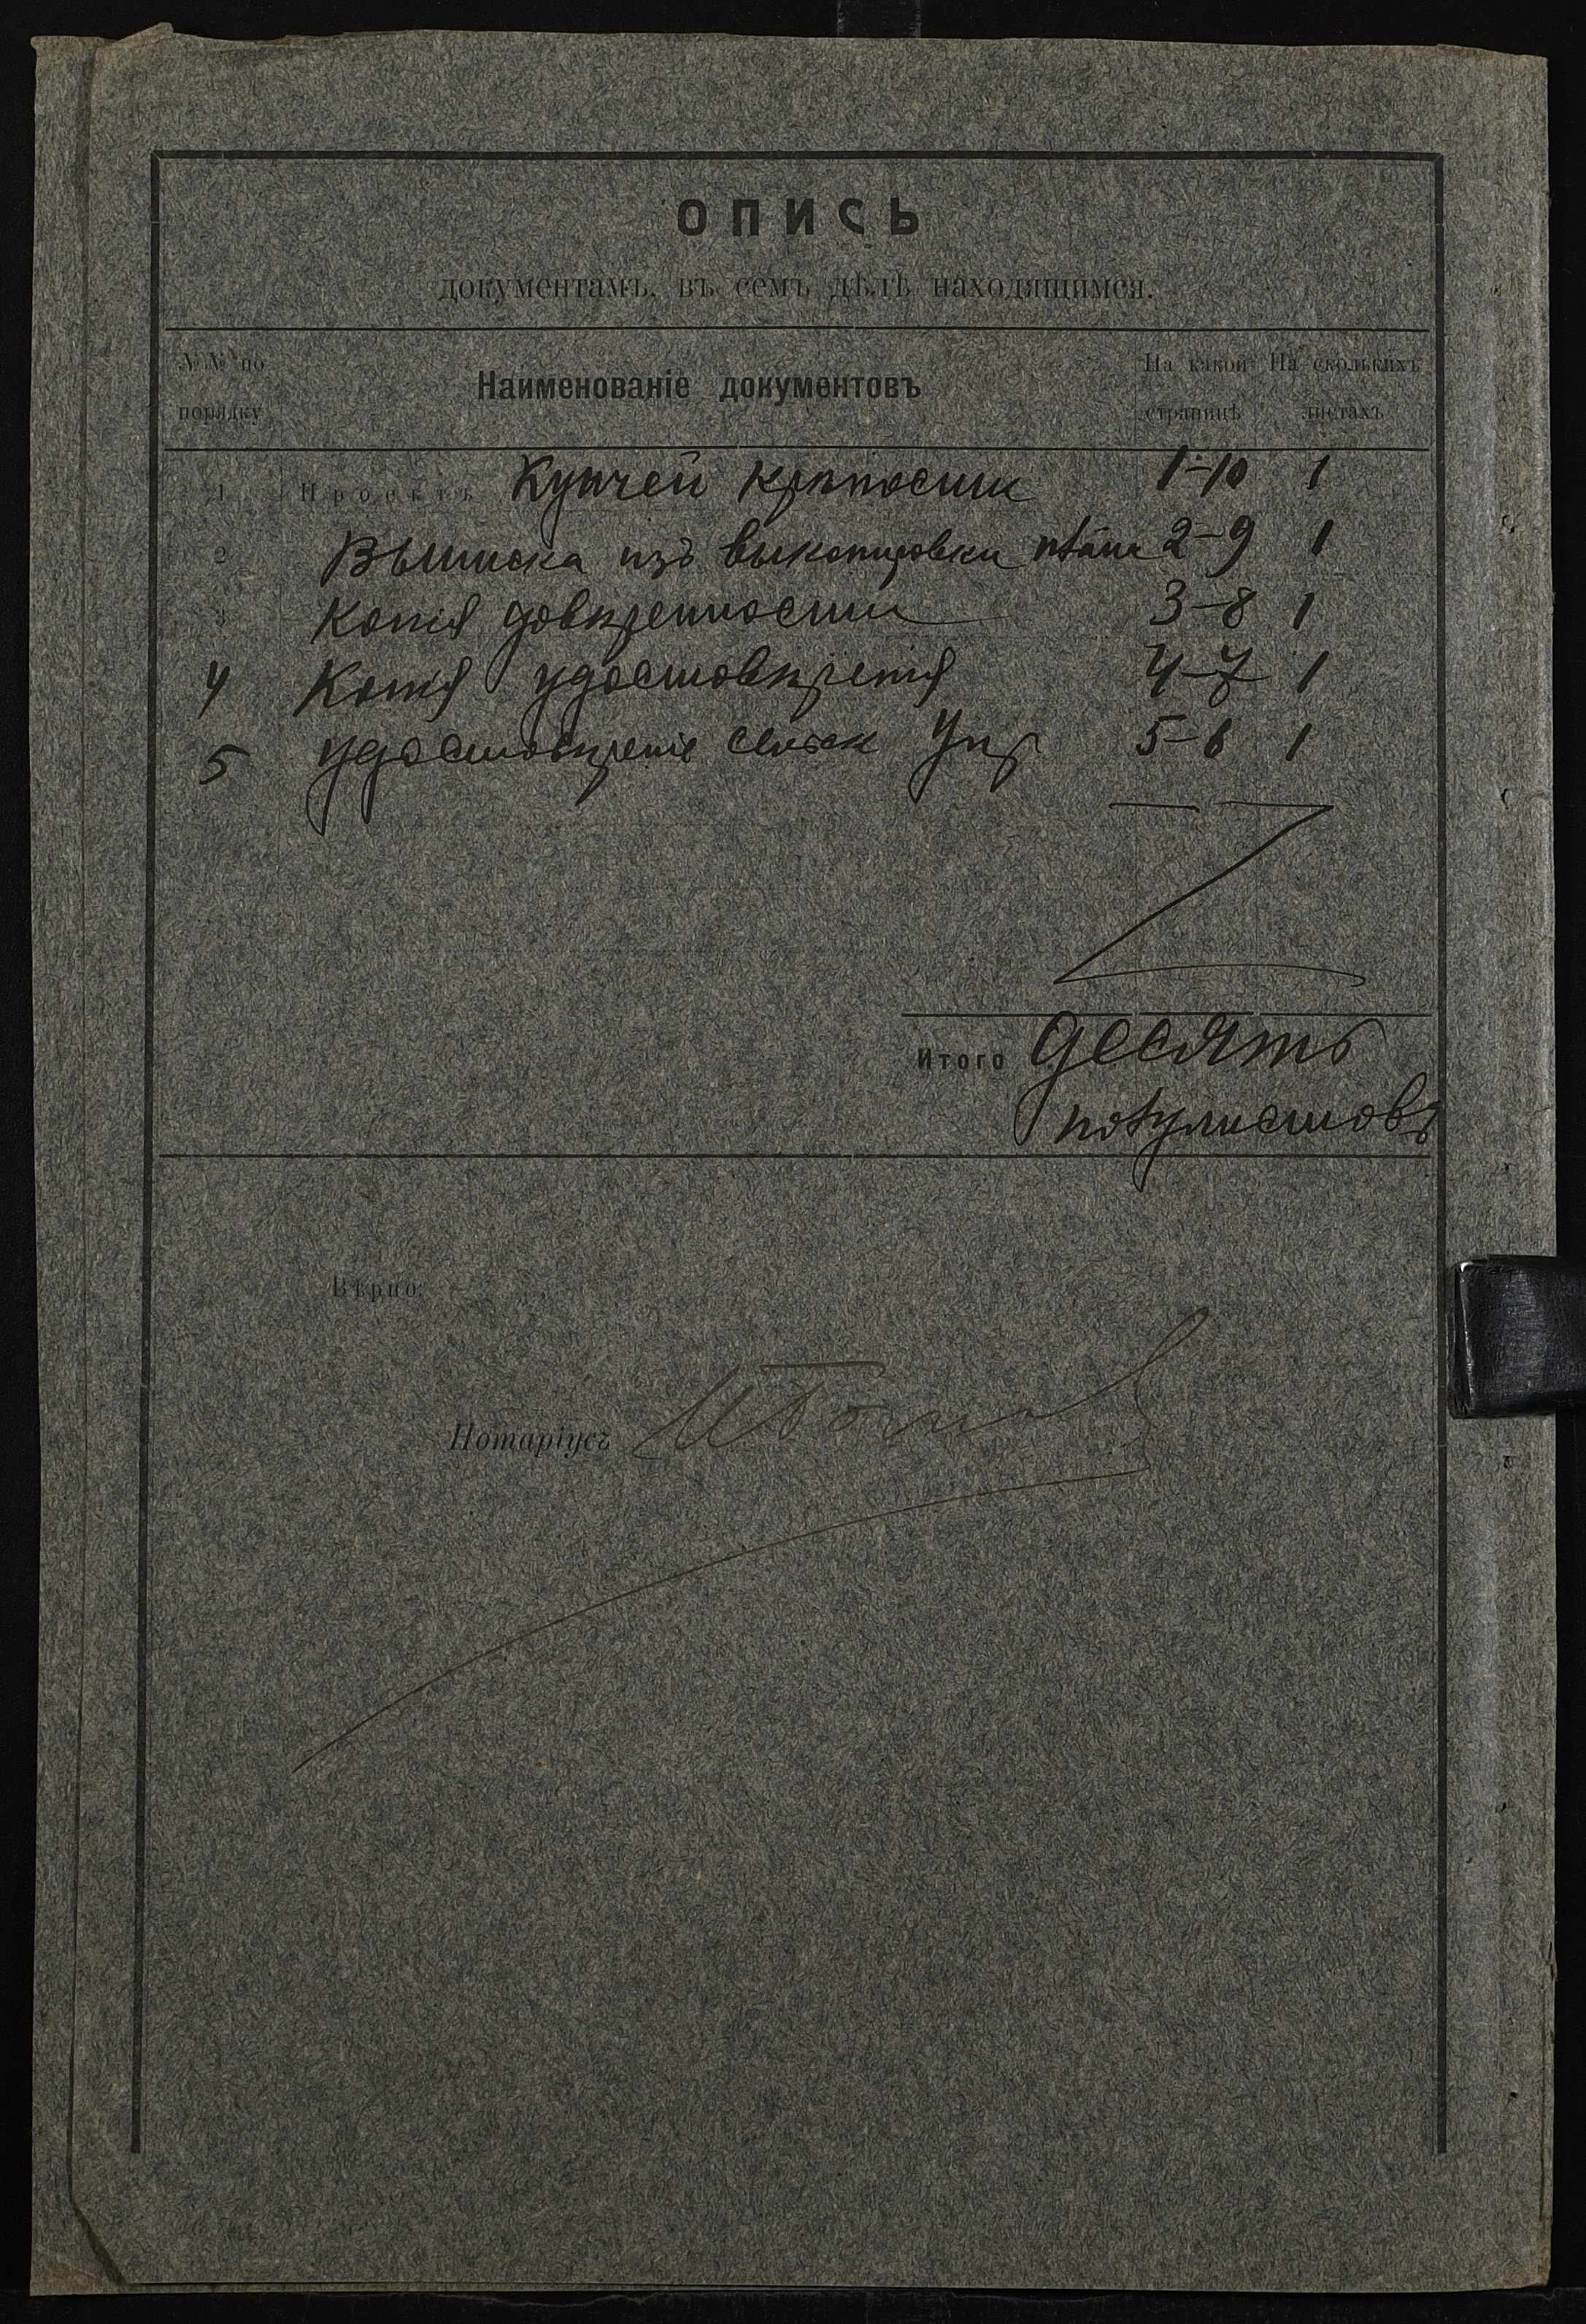 ОПИСЬ
документамъ, въ семъ дѣлѣ находящимся.
№№ по порядку Наименованіе документовъ На какой страницѣ На сколькихъ листахъ
1 Проектъ Купчей крѣпости 1-10 1
2 Выписка изъ выкопировки плана 2-9 1
3 Копія довѣренности 3-8 1
4 Копія удостовѣренія 4-7 1
5 удостовѣреніе сельск Упр 5-6 1
Итого десять
полулистовъ
Вѣрно:
Нотаріусъ